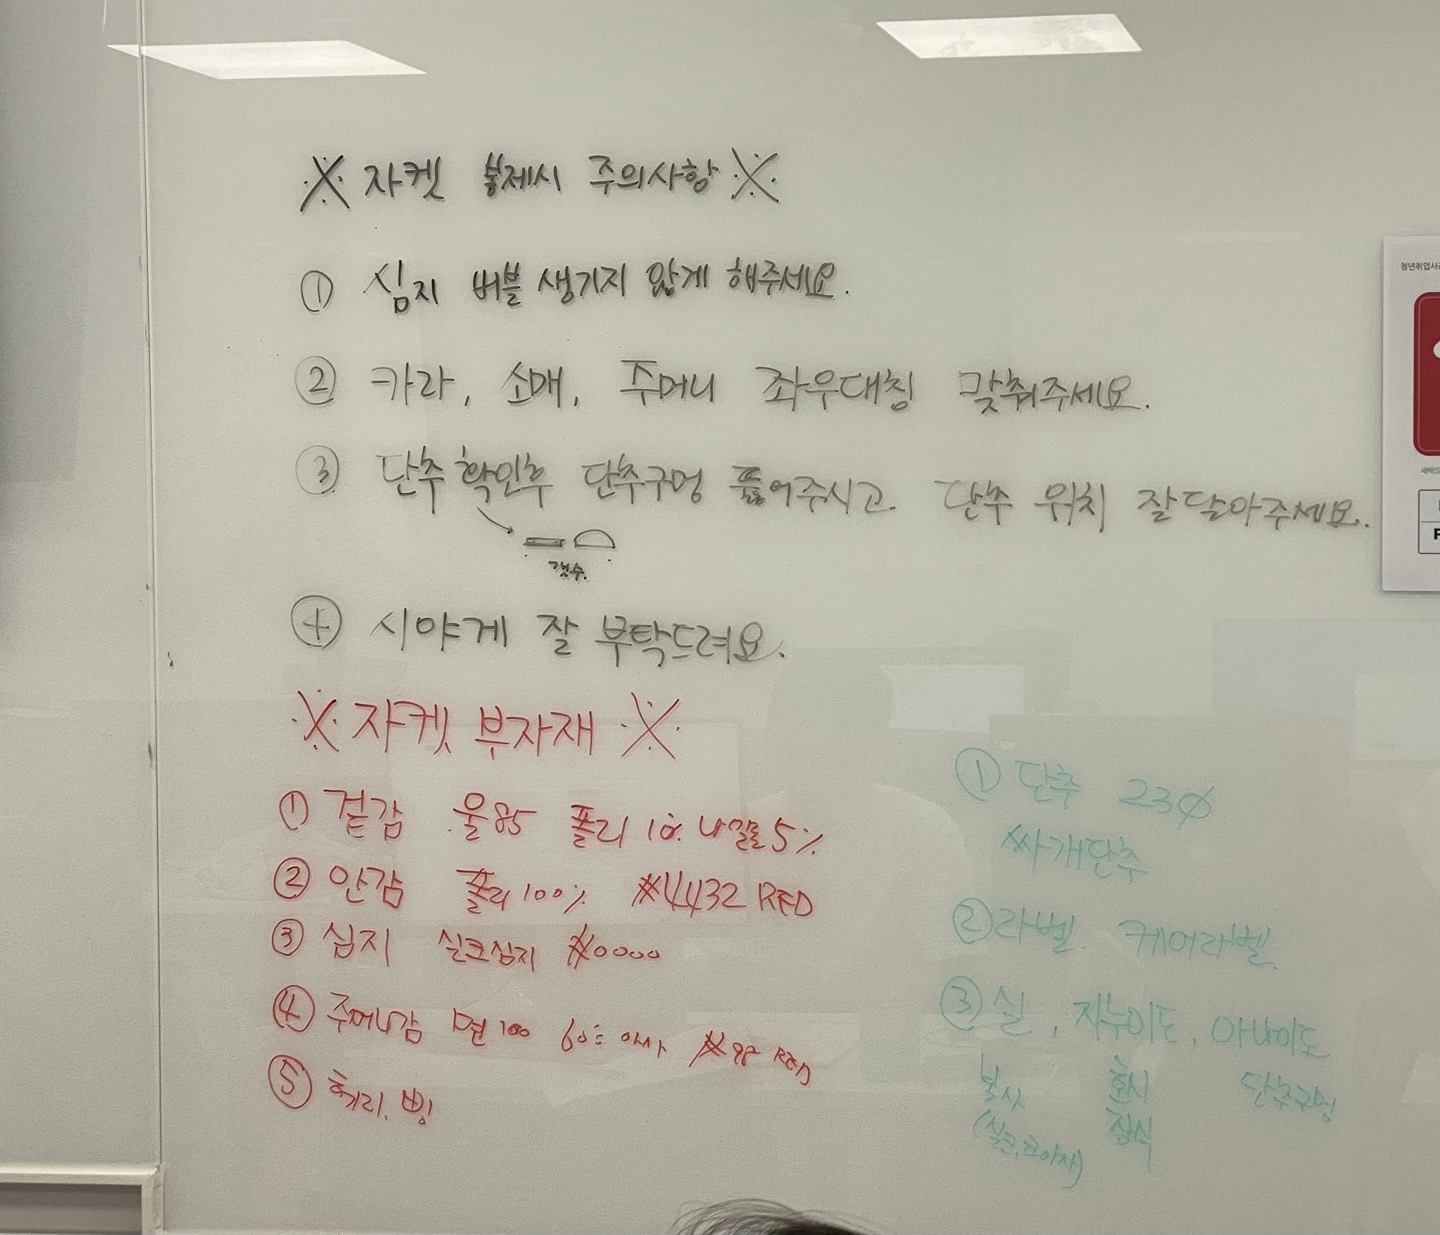 ※ 자켓 봉제시 주의사항 ※
① 심지 버블 생기지 않게 해주세요.
② 카라, 소매, 주머니 좌우대칭 맞춰주세요.
③ 단추 확인후 단추구멍 뚫어주시고. 단추 위치 잘 달아주세요.
갯수.
④ 시야게 잘 부탁드려요.
※ 자켓 부자재 ※
① 겉감 울85 폴리 10% 나일론 5%
② 안감 폴리 100% #4432 RED
③ 심지 실크심지 #0000
④ 주머니감 면 100 60수 아사 #98 RED
⑤
① 단추 23∅
싸개단추
② 라벨. 케어라벨.
③ 실, 지누이도, 아나이도
봉사 호시 단추구멍
장식
청년취업사관